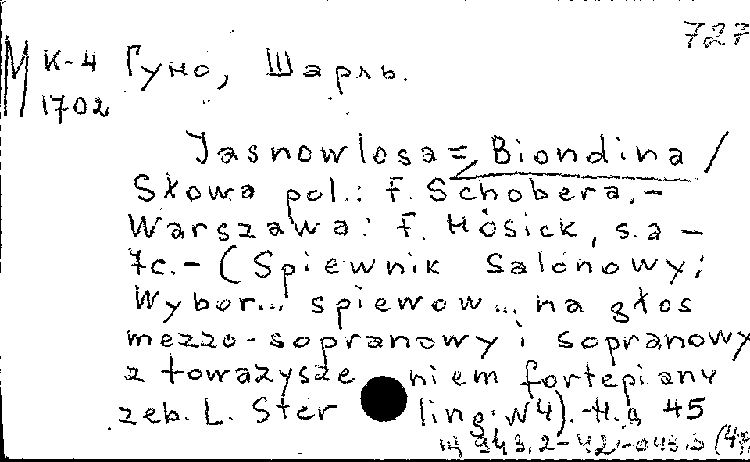 727
М К-4 Гуно, Шарль.
1702
Jasnowlosa = Biondina /
Słowa pol.: F. Schobera. -
Warszawa: F. Hösick, s.a -
7c. - (Spiewnik salonowy;
Wybor... spiewow... na głos
mezzo-sopranowy i sopranowy
z towazysze niem fortepianu
zeb. L. Ster ling. W4). - H.g 45